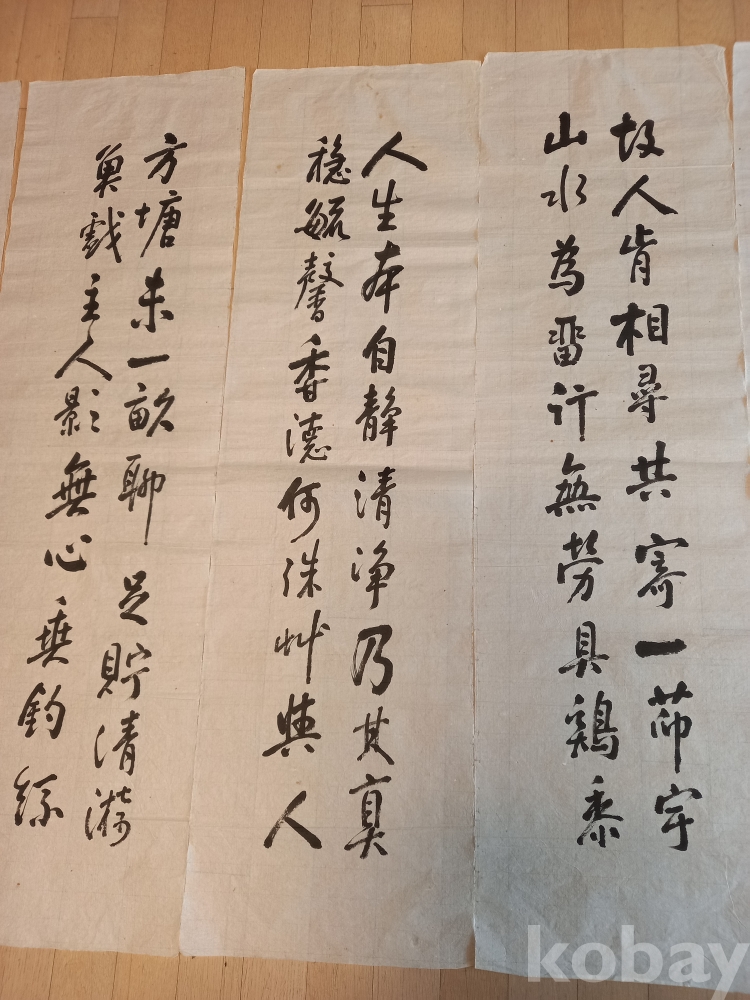 故人肯相尋共寄一茆宇
山水為留行無勞具鶏黍
人生本自静清净乃其真
穏毓馨香德何殊艸與人
方塘未一畝聊足貯清漪
魚戲主人影無心垂釣絲
kobay